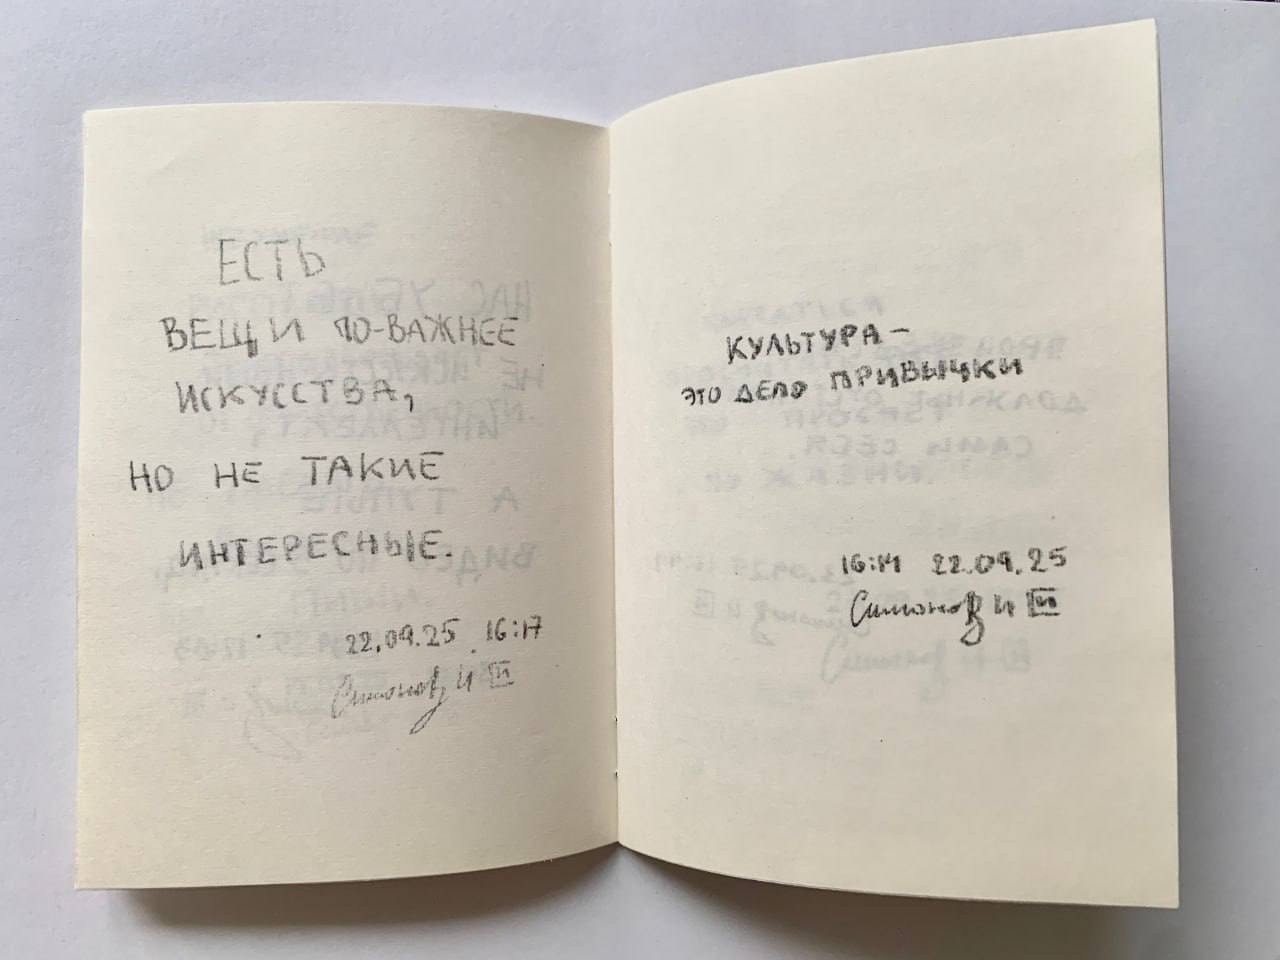 ЕСТЬ
ВЕЩИ ПО-ВАЖНЕЕ
ИСКУССТВА,
НО НЕ ТАКИЕ
ИНТЕРЕСНЫЕ.
22.09.25 16:17
Симонов И III
КУЛЬТУРА –
ЭТО ДЕЛО ПРИВЫЧКИ
16:14 22.09.25
Симонов И III